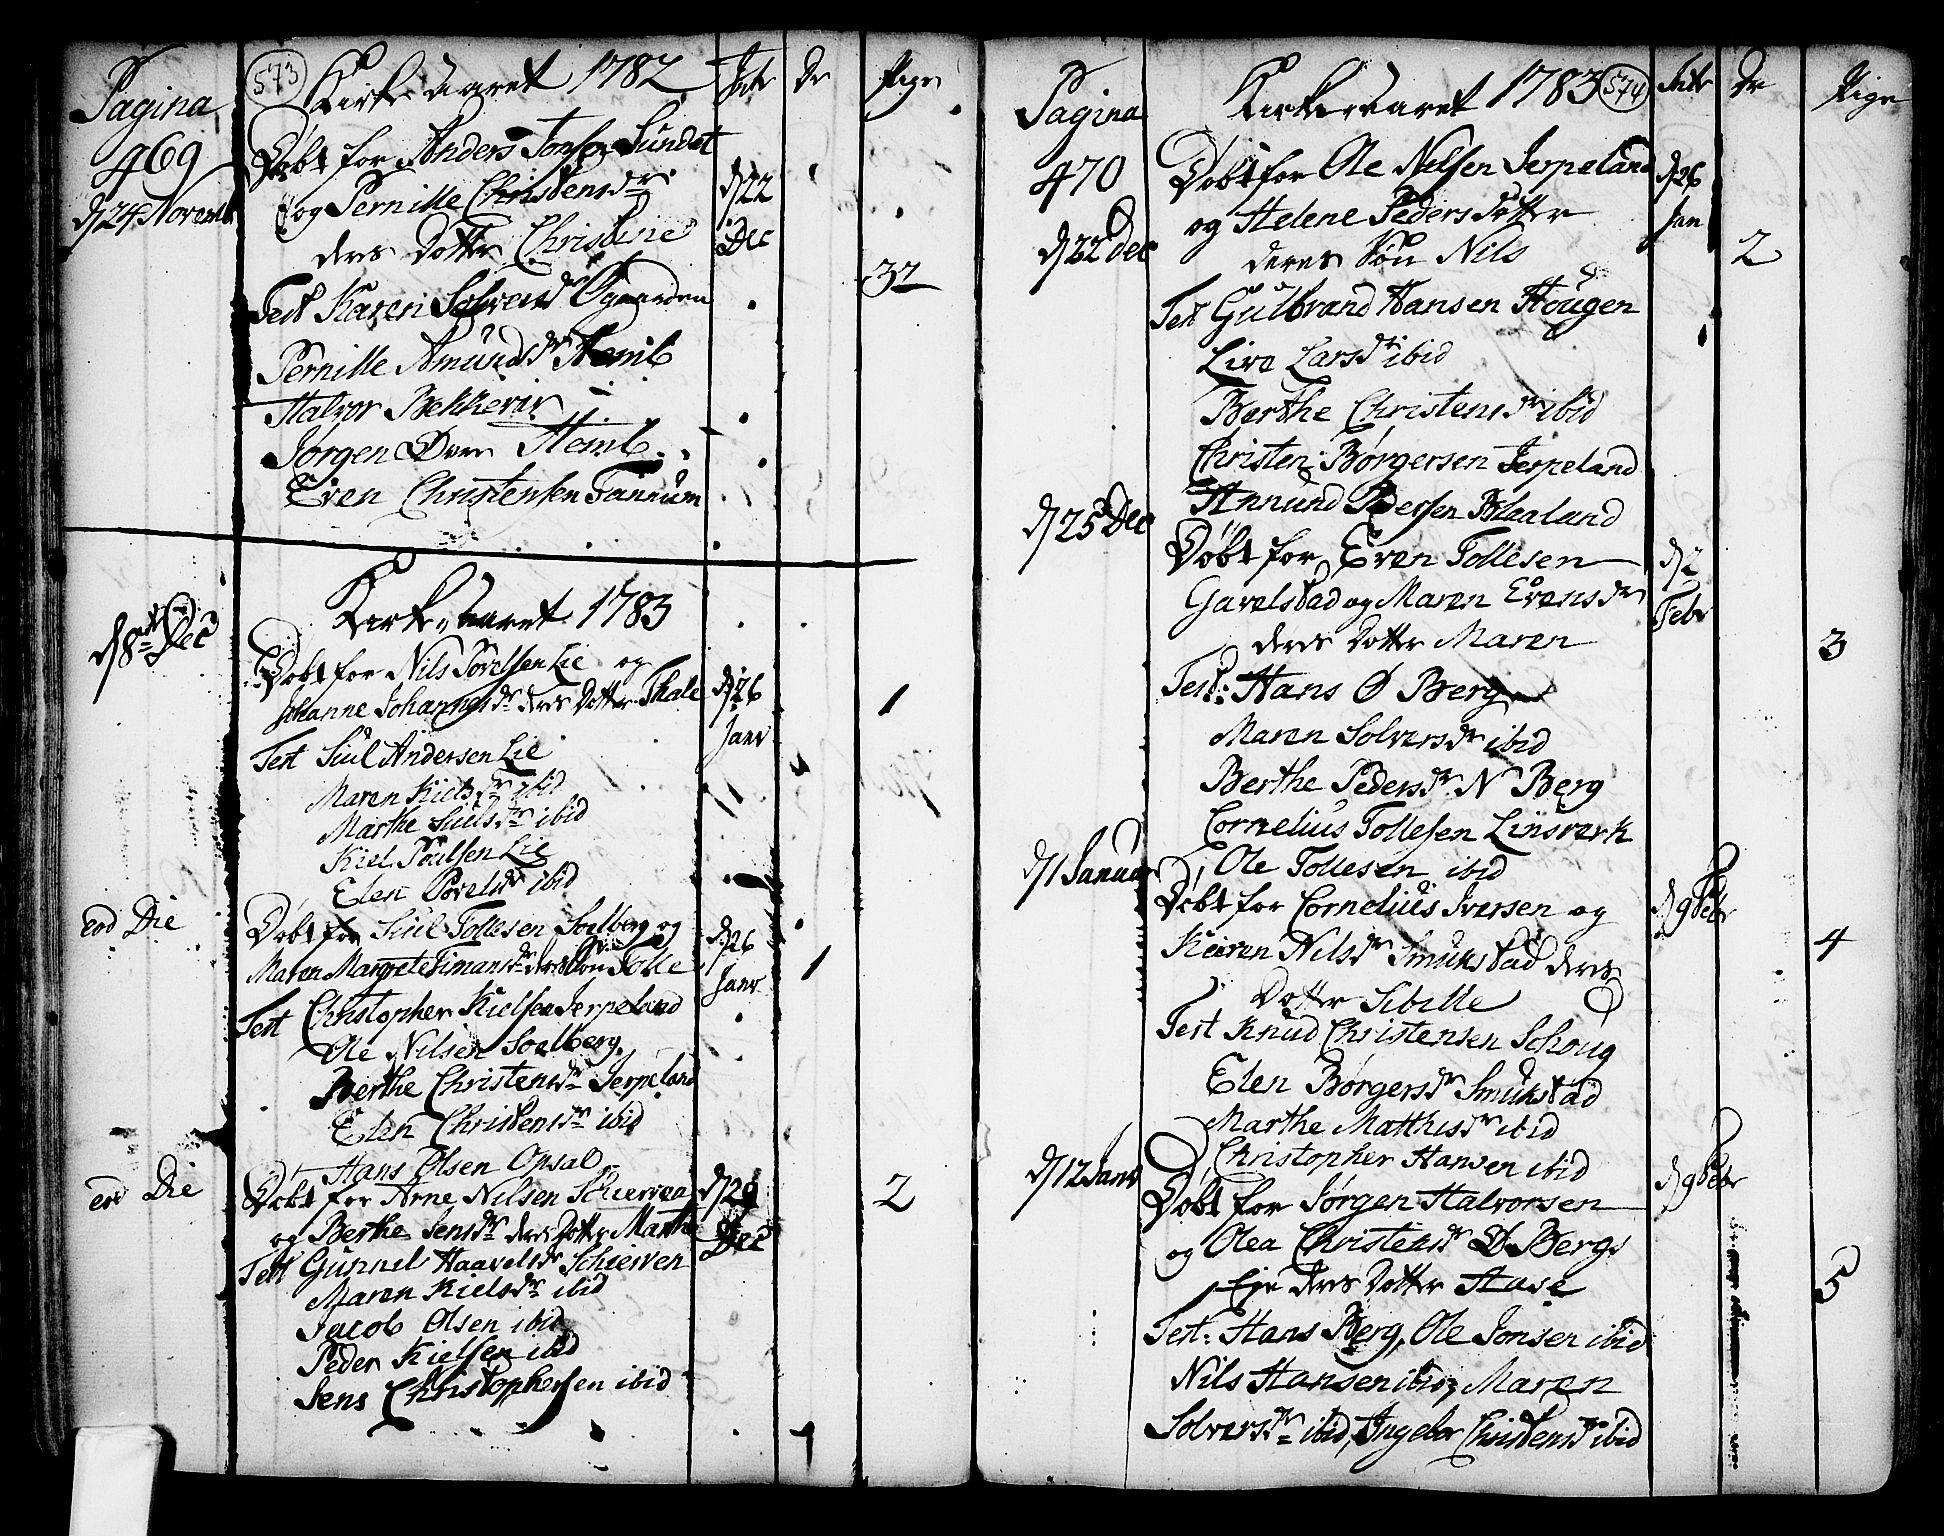 Pagina
469
d 24 Novemb
573
Kirke Aaret 1782
Intr
Dr
Pige
Døbt for Anders Jonsen Sundet
og Pernille Christensdr
ders Dotter Christine
d 22
Dec
37
Test Karen Solversdr Øgaarden
Pernille Amundsdr Hemb
Halvor Bekkevir
Jørgen Hemb
Even Christensen Fannum
Kirke Aaret 1783
d 8de Dec
Døbt for Nils Povelsen Lie og
Johanne Johannesdr ders Dotter Thale
d 26
Janv
1
Test Siul Andersen Lie
Maren Kielsdr ibid
Marthe Siulsdr ibid
Kiel Poulsen Lie
Elen Povelsdr ibid
eod Die
Døbt for Siul Tollesen Soelberg og
Maren Margrete Timansdr ders Søn Tolle
d 26
Janv
1
Test Christopher Kielsen Jerpeland
Ole Nilsen Soelberg
Berthe Christensdr Jerpeland
Elen Christensdr ibid
Hans Olsen Opsal
eod Die
Døbt for Arne Nilsen Schierven
og Berthe Jensdr ders Dotter Marthe
d 29
Dec
2
Test Gunnel Haavelsdr Schierven
Maren Kielsdr ibid
Jacob Olsen ibid
Peder Kielsen ibid
Jens Christophersen ibid
Pagina
470
d 22 Dec
Kirke Aaret 1783
574
Intr
Dr
Pige
Døbt for Ole Nilsen Jerpeland
og Helene Pedersdotter
deres Søn Nils
d 26
Jan
2
Test Gulbrand Hansen Hougen
Live Larsdr ibid
Berthe Christensdr ibid
Christen Børgersen Jerpeland
Annund Pedersen Aaland
d 25 Dec
Døbt for Even Tollesen
Gavelstad og Maren Evensdr
ders Dotter Maren
d 2
Febr
3
Test: Hans Ø Berg
Maren Solversdr ibid
Berthe Pedersdr N Berg
Cornelius Tollesen Linsverk
Ole Tollesen ibid
d 1 Januar
Døbt for Cornelius Iversen og
Karen Nilsdr Smukstad ders
Dotter Sibille
d 9 Febr
4
Test Knud Christensen Schoug
Elen Børgersdr Smukstad
Marthe Matthisdr ibid
Christopher Hansen ibid
d 12 Janv
Døbt for Jørgen Halvorsen
og Olea Christensdr D Bergs
Eje ders Dotter Aase
d 9 Febr
5
Test: Hans Berg, Ole Jonsen ibid
Nils Hansen ibid, Maren
Solversdr ibid, Ingebor Christensdr ibid